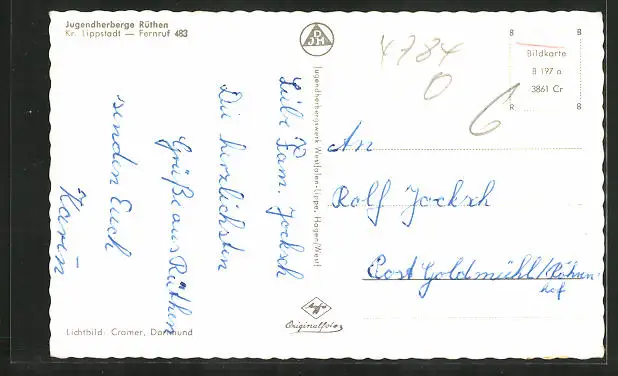 Jugendherberge Rüthen
Kr. Lippstadt — Fernruf 483
Liebe Fam. Jocksch
Die herzlichsten
Grüße aus Rüthen
senden Euch
Karin
Lichtbild: Cramer, Dortmund
DJH
Jugendherbergswerk Westfalen-Lippe, Hagen/Westf
Agfa
Originalfoto
4784
0
6
B B
Bildkarte
B 197 a
3861 Cr
R B
An
Rolf Jocksch
Post Goldmühl/Röhren-
hof